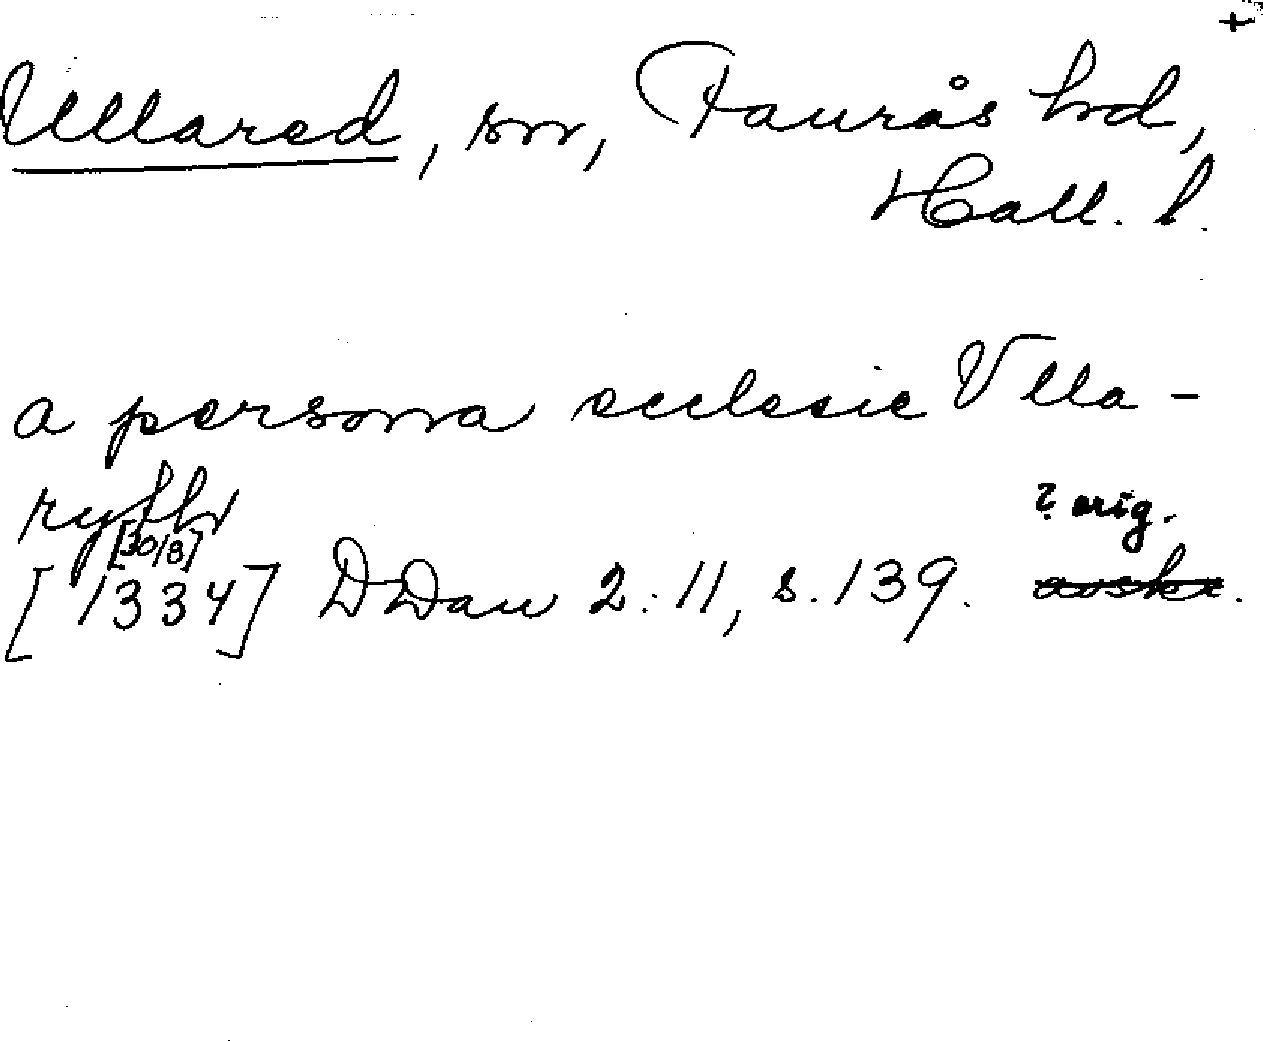 +
Ullared, sn, Faurås hd,
Hall. l.
a persona ecclesie Vlla-
rythh
[30/8]
? orig.
[1334] DDan 2:11, s. 139. avskr.